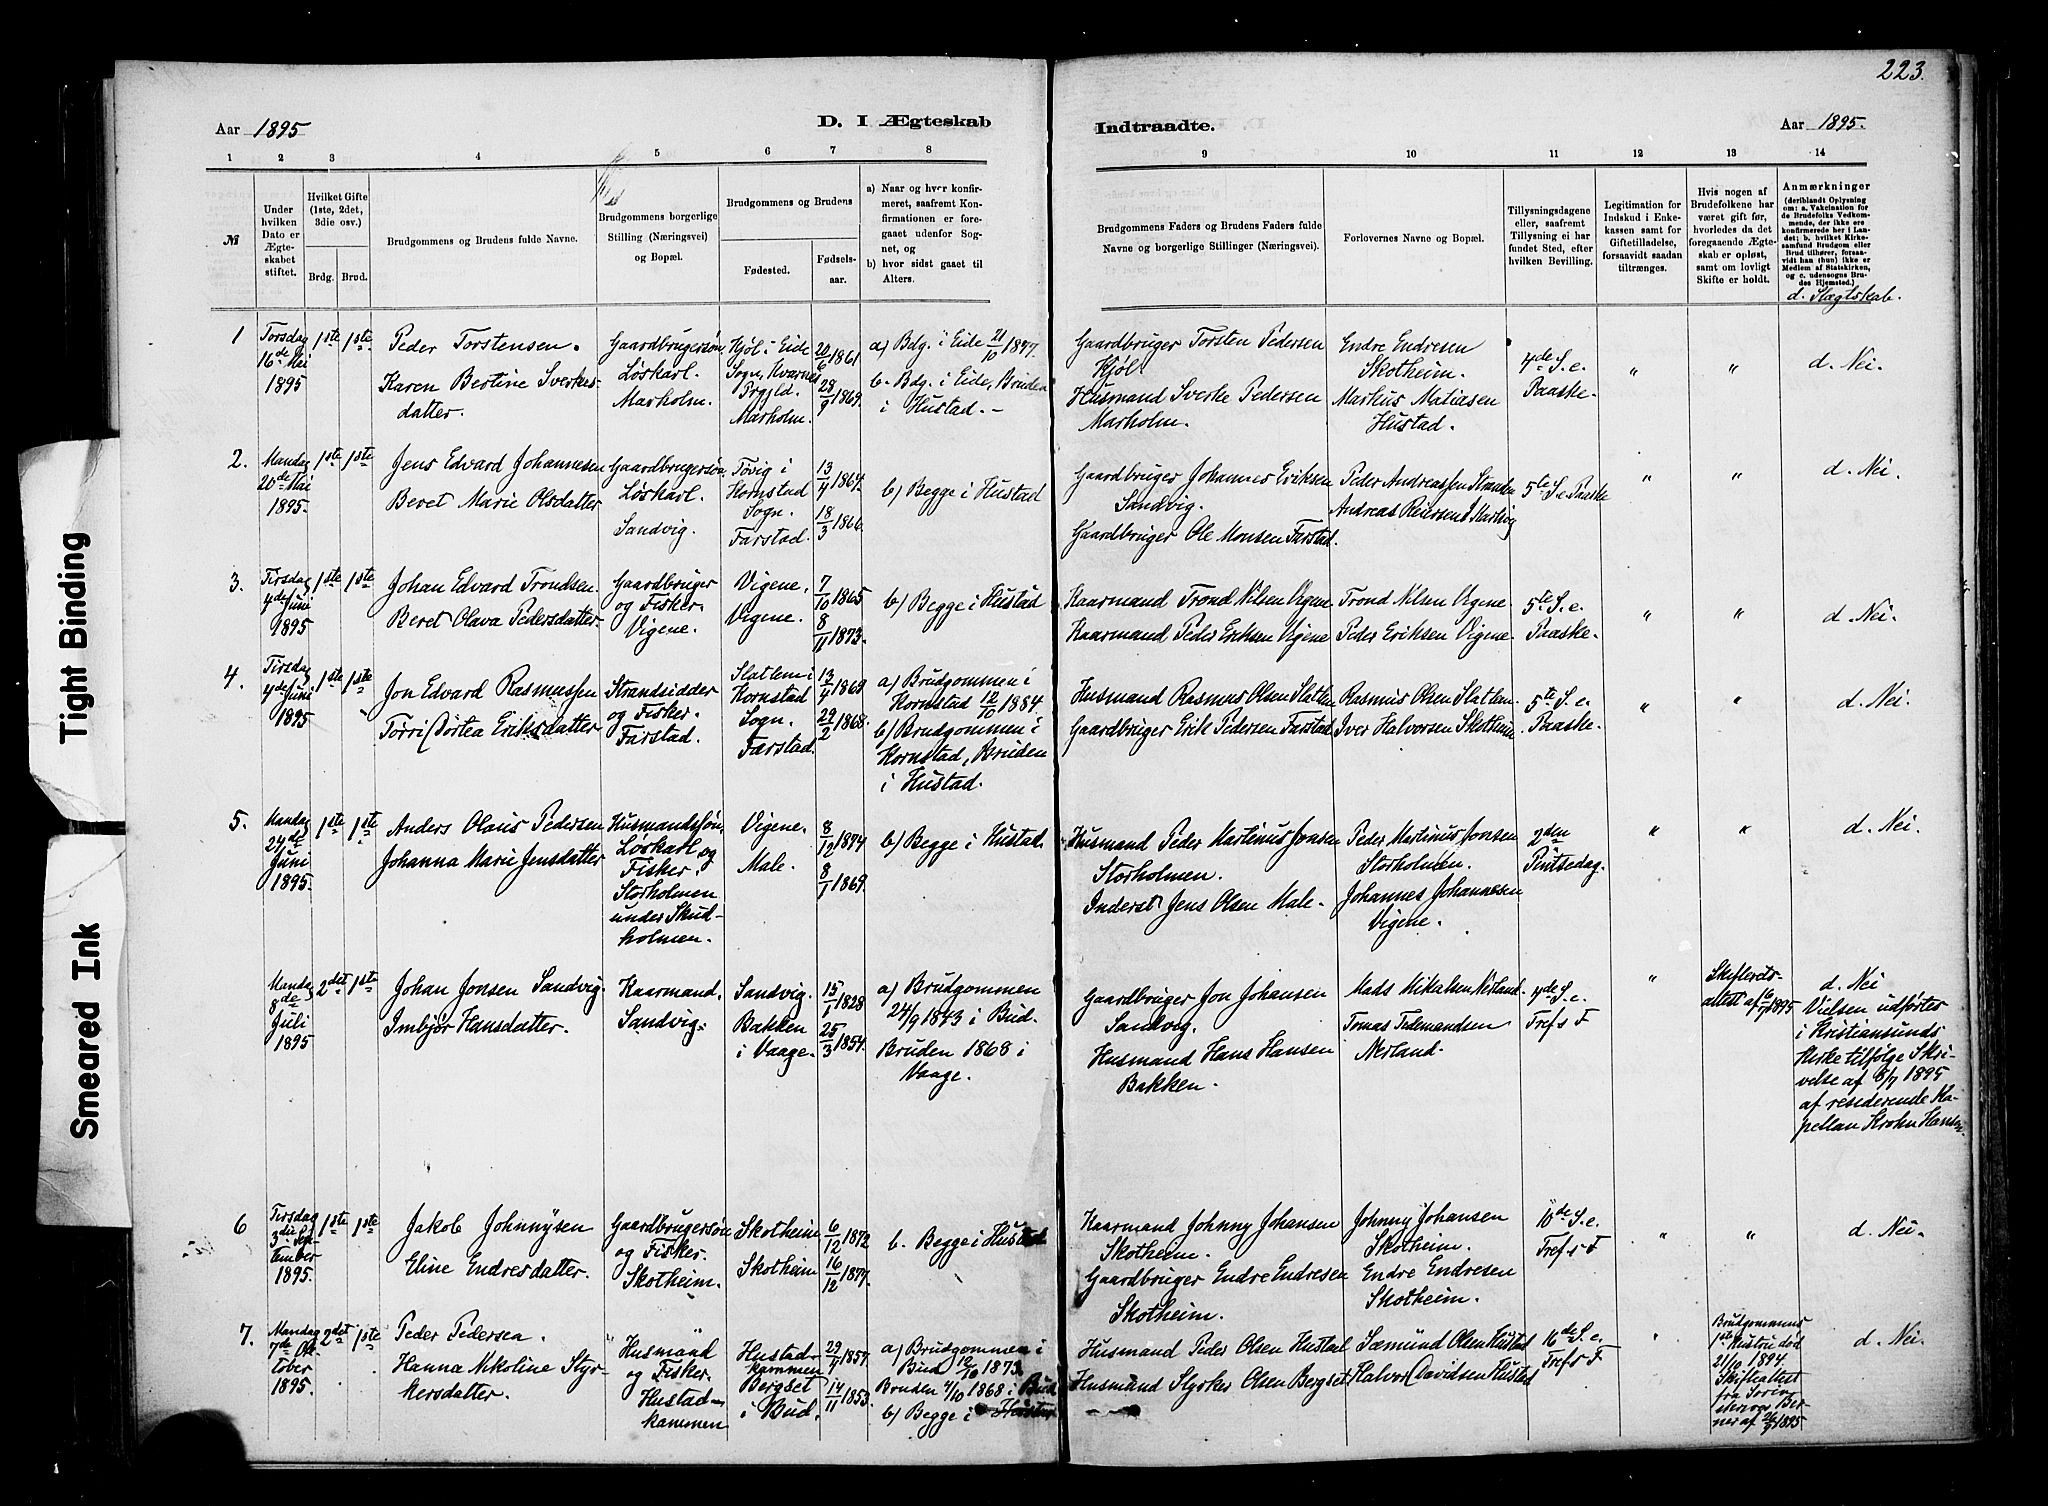 223.
Aar 1895
D. I Ægteskab
Indtraadte.
Aar 1895.
1 2 3 4 5 6 7 8
9 10 11 12 13 14
№
Under hvilken Dato er Ægteskabet stiftet.
Hvilket Gifte (1ste, 2det, 3die osv.)
Brdg. Brud.
Brudgommens og Brudens fulde Navne.
Brudgommens borgerlige Stilling (Næringsvei) og Bopæl.
Brudgommens og Brudens
Fødested.
Fødselsaar.
a) Naar og hvor konfirmeret, saafremt Konfirmationen er foregaaet udenfor Sognet, og
b) hvor sidst gaaet til Alters.
Brudgommens Faders og Brudens Faders fulde Navne og borgerlige Stillinger (Næringsvei).
Forlovernes Navne og Bopæl.
Tillysningsdagene eller, saafremt Tillysning ei har fundet Sted, efter hvilken Bevilling.
Legitimation for Indskud i Enkekassen samt for Giftetilladelse, forsaavidt saadan tiltrænges.
Hvis nogen af Brudefolkene har været gift før, hvorledes da det foregaaende Ægteskab er opløst, samt om lovligt Skifte er holdt.
Anmærkninger
(deriblandt Oplysning om: a. Vakcination for de Brudefolks Vedkommende, der ikke ere konfirmerede her i Landet; b. hvilket Kirkesamfund Brudgom eller Brud tilhører, forsaavidt han (hun) ikke er Medlem af Statskirken, og c. udensogns Brudes Hjemsted.)
d. Slægtskab.
1 Torsdag 16de Mei 1895 1ste 1ste
Peder Torstensen.
Karen Bertine Sverkesdatter.
Gaardbrugersøn Løskarl. Marholm.
Kjøl i Eide Sogn, Kvarnes Prgjld. Marholm.
20/6 1861 28/9 1869.
a) Bdg. i Eide 21/10 1877.
b. Bdg. i Eide, Bruden i Hustad.
Gaardbruger Torsten Pedersen Kjøl.
Husmand Sverke Pedersen Marholm.
Endre Endresen Skotheim.
Markus Matiasen Hustad.
4de S. e. Paaske.
" "
d. Nei.
2. Mandag 20de Mai 1895. 1ste 1ste
Jens Edvard Johannesen
Beret Marie Olsdatter
Gaardbrugersøn Løskarl. Sandvig.
Tøvig i Kornstad Sogn. Farstad.
13/4 1864. 18/3 1866.
b) Begge i Hustad
Gaardbruger Johannes Eriksen Sandvig.
Gaardbruger Ole Monsen Farstad.
Peder Andreassen Stranden
Andreas Reiersen
5te S. e. Paaske
" "
d. Nei.
3. Tirsdag 4de Juni 1895 1ste 1ste
Johan Edvard Trondsen.
Beret Olava Pedersdatter.
Gaardbruger og Fisker. Vigene.
Vigene. Vigene.
7/10 1865 8/11 1873.
b) Begge i Hustad
Kaarmand Trond Nilsen Vigene.
Kaarmand Peder Eriksen Vigene
Trond Nilsen Vigene
Peder Eriksen Vigene.
5te S. e. Paaske.
" "
d. Nei.
4. Tirsdag 4de Juni 1895 1ste 1ste
Jon Edvard Rasmussen
Torri Dortea Eriksdatter
Strandsidder og Fisker. Farstad.
Slatlem i Kornstad Sogn. Farstad.
13/4 1868 29/2 1868.
a) Brudgommen i Kornstad 12/10 1884
b) Brudgommen i Kornstad, Bruden i Hustad.
Husmand Rasmus Olsen Slatlem
Gaardbruger Erik Pedersen Farstad
Rasmus Olsen Slatlem.
Iver Halvorsen Skotheim
5te S. e. Paaske.
" "
d. Nei.
5. Mandag 24de Juni 1895. 1ste 1ste
Anders Olaus Pedersen
Johanna Marie Jensdatter
Husmandssøn, Løskarl, og Fisker. Storholmen under Skudholmen.
Vigene. Male.
8/12 1874 8/1 1869.
b) Begge i Hustad.
Husmand Peder Martinus Jonsen Storholmen.
Inderst Jens Olsen Male.
Peder Martinus Jonsen Storholmen.
Johannes Johannesen Vigene.
2den Pintsedag.
" "
d. Nei.
Mandag 8de Juli 1895 2det 1ste
Johan Jonsen Sandvig.
Imbjør Hansdatter.
Kaarmand. Sandvig.
Sandvig. Bakken i Vaage.
15/1 1828 25/3 1854.
a) Brudgommen 24/9 1843 i Bud. Bruden 1868 i Vaage.
Gaardbruger Jon Johansen Sandvig.
Husmand Hans Hansen Bakken.
Mads Mikalsen Nerland.
Tomas Tedemandsen Nerland.
4de S. e. Tref. s F
"
Skifterets-attest af 6/7 1895
d. Nei
Vielsen udførtes i Kristiansunds Kirke tilfølge Skrivelse af 8/7 1895 af residerende Kapellan Krohn Hansen.
6 Tirsdag 3die September 1895. 1ste 1ste
Jakob Johnnysen
Eline Endresdatter.
Gaardbrugersøn og Fisker. Skotheim.
Skotheim. Skotheim
6/12 1872 16/12 1877.
b. Begge i Hustad
Kaarmand Johnny Johansen Skotheim.
Gaardbruger Endre Endresen Skotheim.
Johnny Johansen Skotheim.
Endre Endresen Skotheim.
10de S. e. Tref. s F
" "
d. Nei.
7. Mandag 7de Oktober 1895. 2det 1ste
Peder Pedersen.
Hanna Nikoline Styrkersdatter.
Husmand og Fisker. Hustadkammen
Hustadkammen Bergset i Bud.
29/4 1857. 14/11 1853.
a) Brudgommen i Bud 12/10 1873. Bruden 4/10 1868 i Bud
b) Begge i Hustad
Husmand Peder Olsen Hustad
Husmand Styrker Olsen Bergset
Sæmund Olsen Hustad
Halvor Davidsen Hustad
16de S. e. Tref. s F
"
Brudgommens 1ste Hustru død 21/10 1894. Skifteattest fra Sorenskriver Berner af 26/9 1895
d. Nei
Tight Binding
Smeared Ink